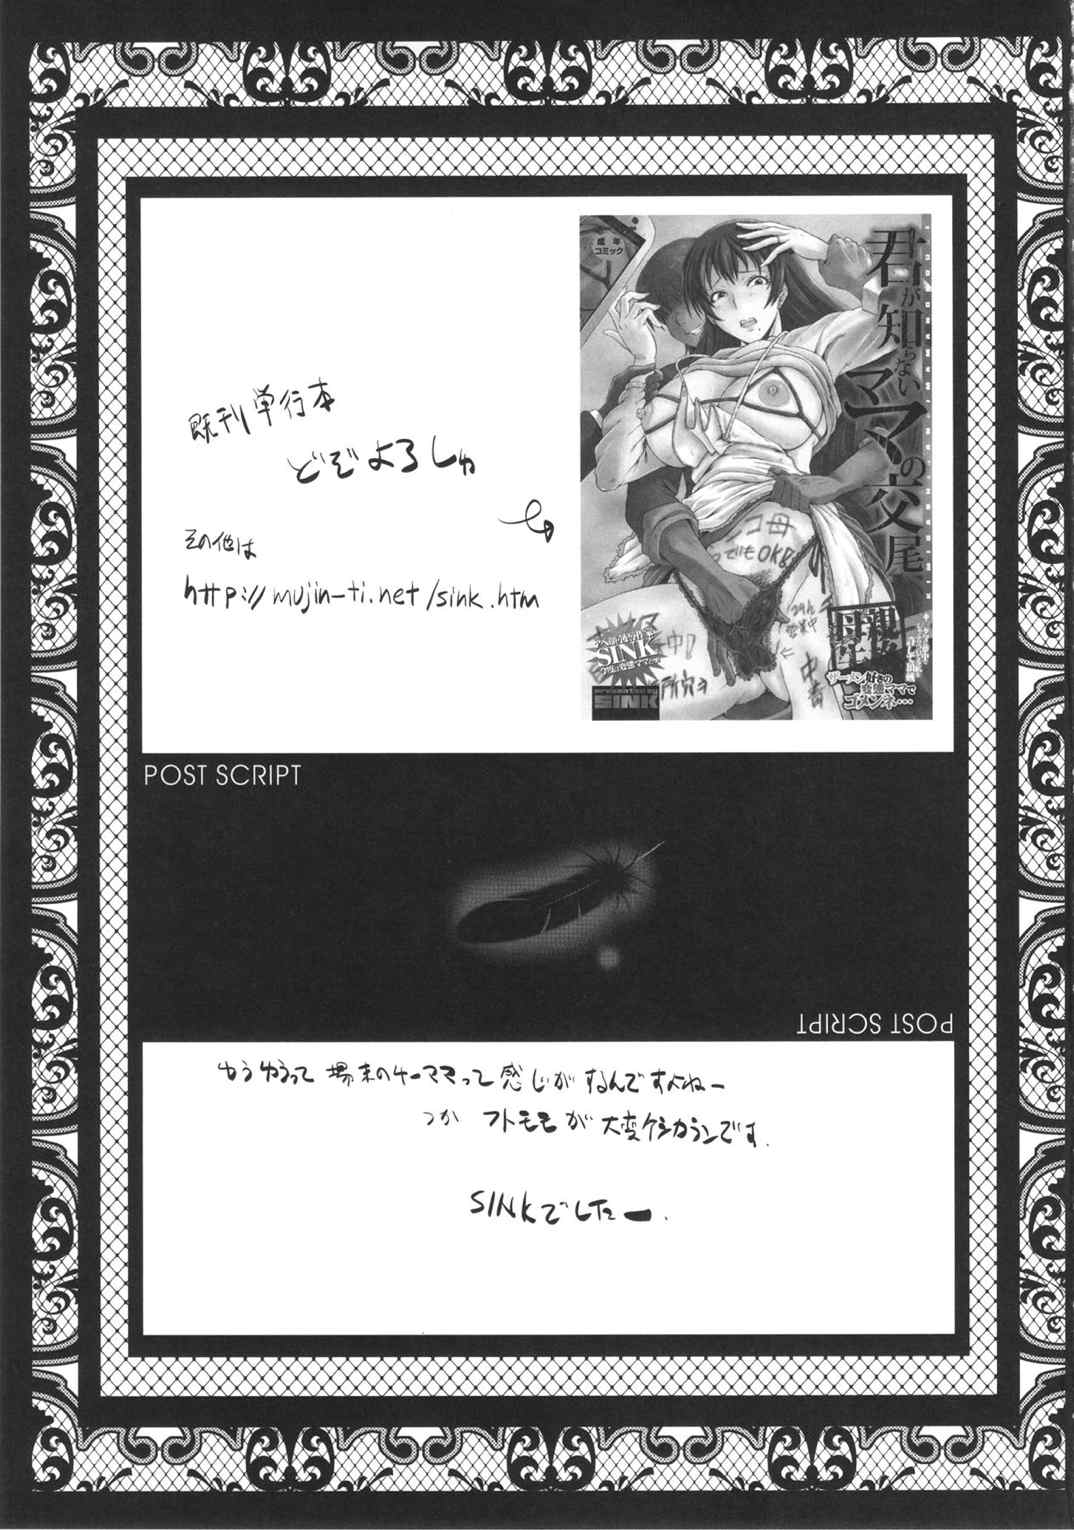 既刊単行本
どぞよろしゅ
その他は
http://mujin-ti.net/sink.htm
成年
コミック
君が知らないママの交尾
コ母
でもOK
SINK
presented by
SINK
ザーメン好きの
変態ママで
ゴメンネ…
POST SCRIPT
POST SCRIPT
ゆうゆうって 場末のケーママって 感じがするんですよねー
つか フトモモが 大変ケシカランです.
SINKでしたー.